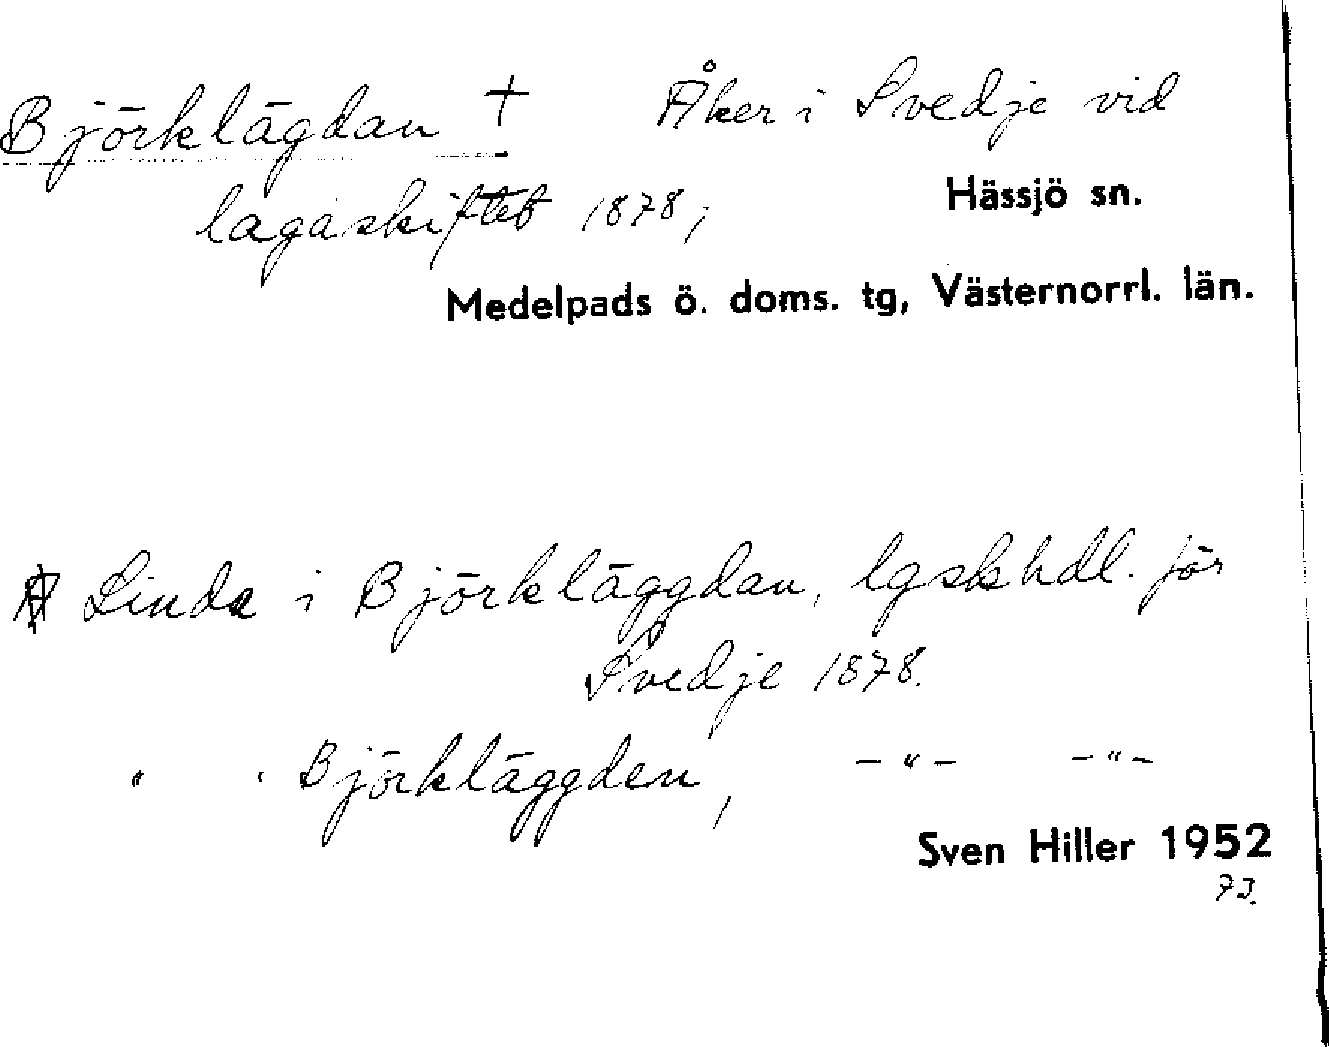 Björklägdan † Åker i Svedje vid
lagaskiftet 1878;
Hässjö sn.
Medelpads ö. doms. tg, Västernorrl. län.
Linda i Björkläggdan, lgskhdl. för
Svedje 1878.
" " Björkläggden, -"- -"-
Sven Hiller 1952